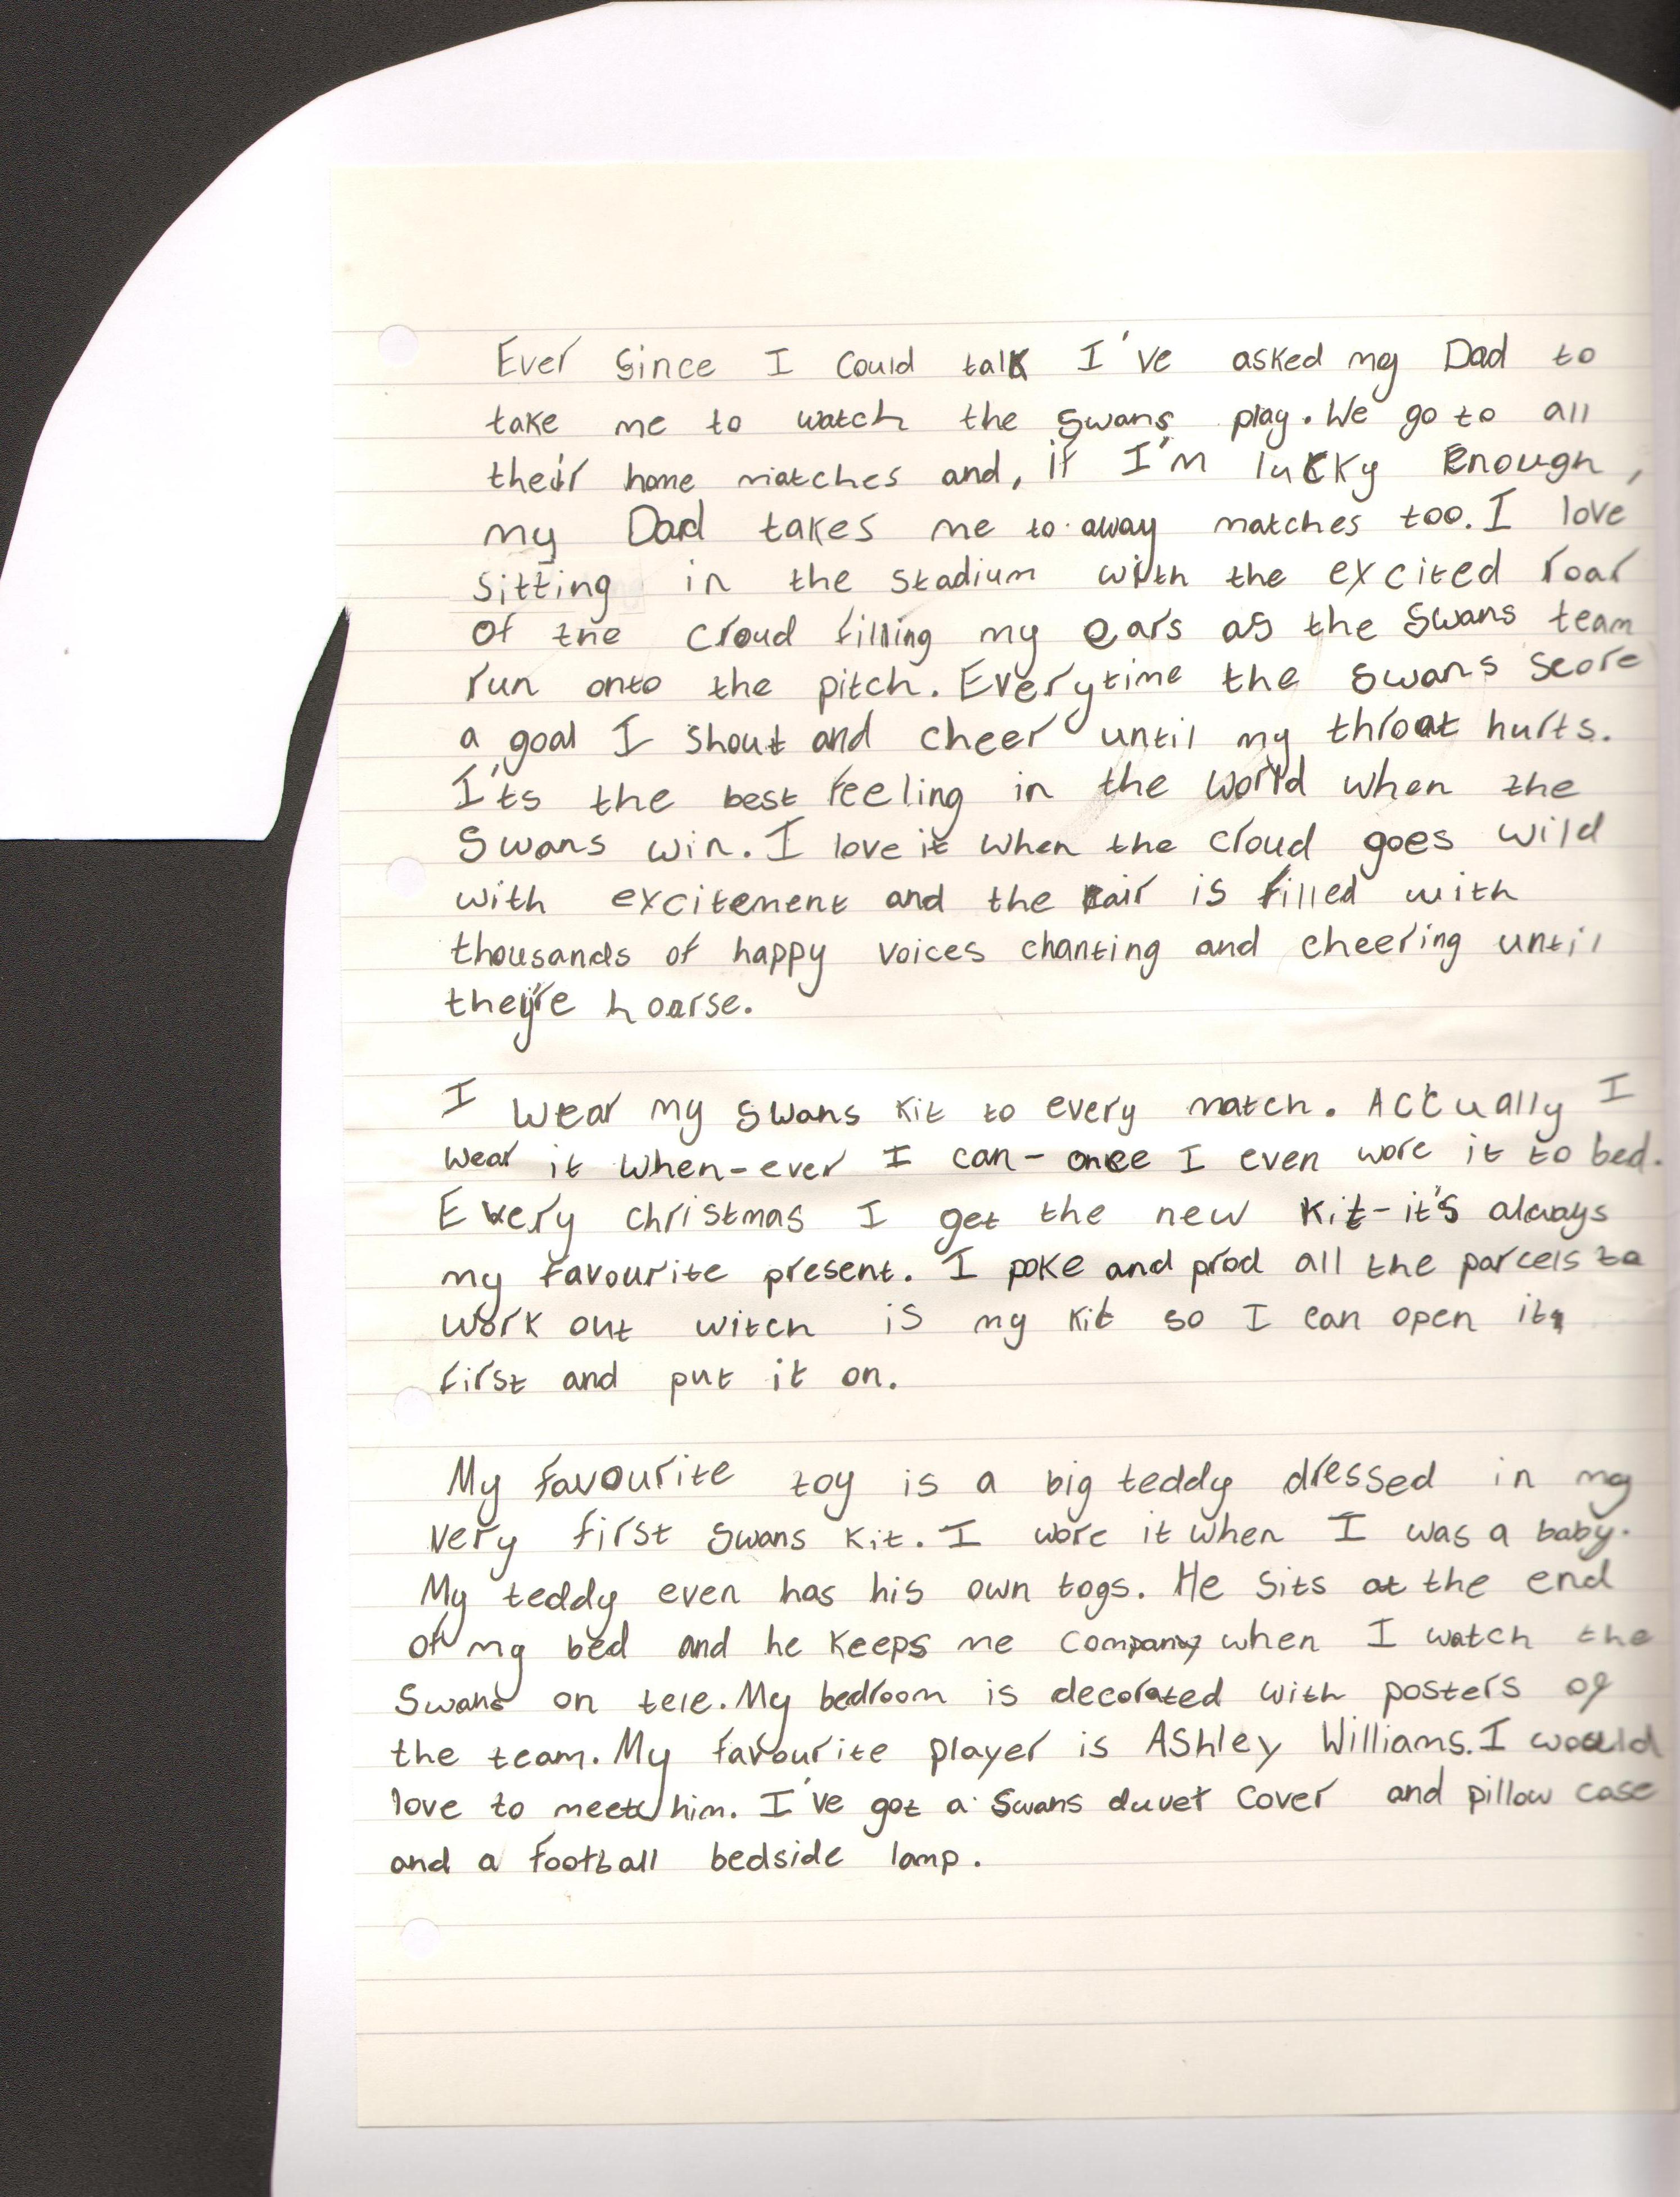 Ever since I could talk I've asked my Dad to
take me to watch the Swans play. We go to all
their home matches and, if I'm lucky enough,
my Dad takes me to away matches too. I love
sitting in the stadium with the excited roar
of the croud filling my ears as the Swans team
run onto the pitch. Everytime the Swans score
a goal I shout and cheer until my throat hurts.
I'ts the best feeling in the world when the
Swans win. I love it when the croud goes wild
with excitement and the air is filled with
thousands of happy voices chanting and cheering until
they're hoarse.
I wear my Swans kit to every match. Actually I
wear it when-ever I can - once I even wore it to bed.
Every christmas I get the new kit - it's always
my favourite present. I poke and prod all the parcels to
work out witch is my kit so I can open it
first and put it on.
My favourite toy is a big teddy dressed in my
very first Swans kit. I wore it when I was a baby.
My teddy even has his own togs. He sits at the end
of my bed and he keeps me company when I watch the
Swans on tele. My bedroom is decorated with posters of
the team. My favourite player is Ashley Williams. I would
love to meet him. I've got a Swans duvet cover and pillow case
and a football bedside lamp.